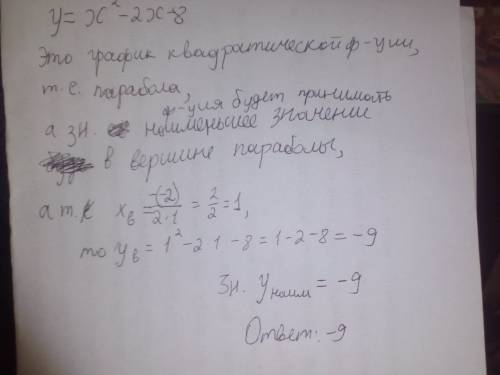 y = x² - 2x - 8
Это график квадратической ф-ции,
т.е. парабола,
ф-ция будет принимать
а зн. наименьшее значение
в вершине параболы,
а т.к xв = -(-2)/2·1 = 2/2 = 1,
то yв = 1² - 2·1 - 8 = 1 - 2 - 8 = -9
Зн. yнаим = -9
Ответ: -9